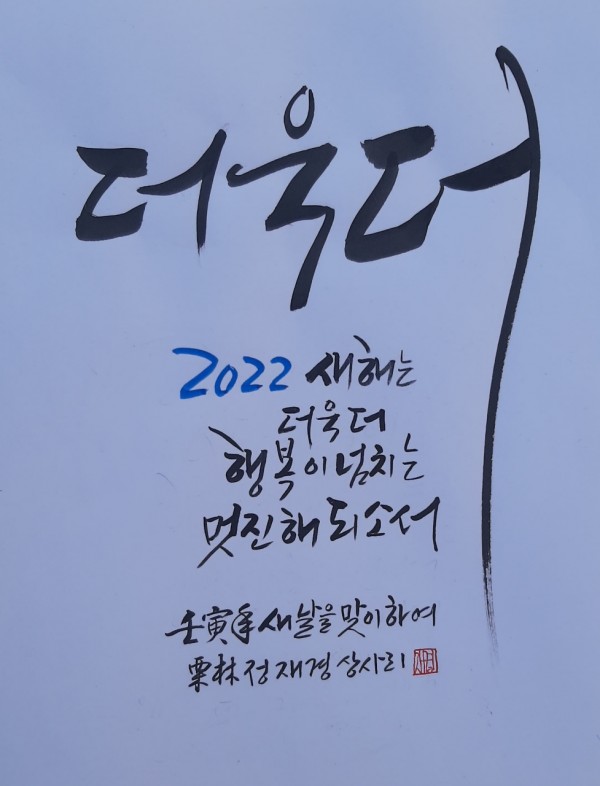 더욱더
2022 새해는
더욱더
행복이넘치는
멋진해되소서
壬寅年 새날을맞이하여
栗林 정재경 상사리